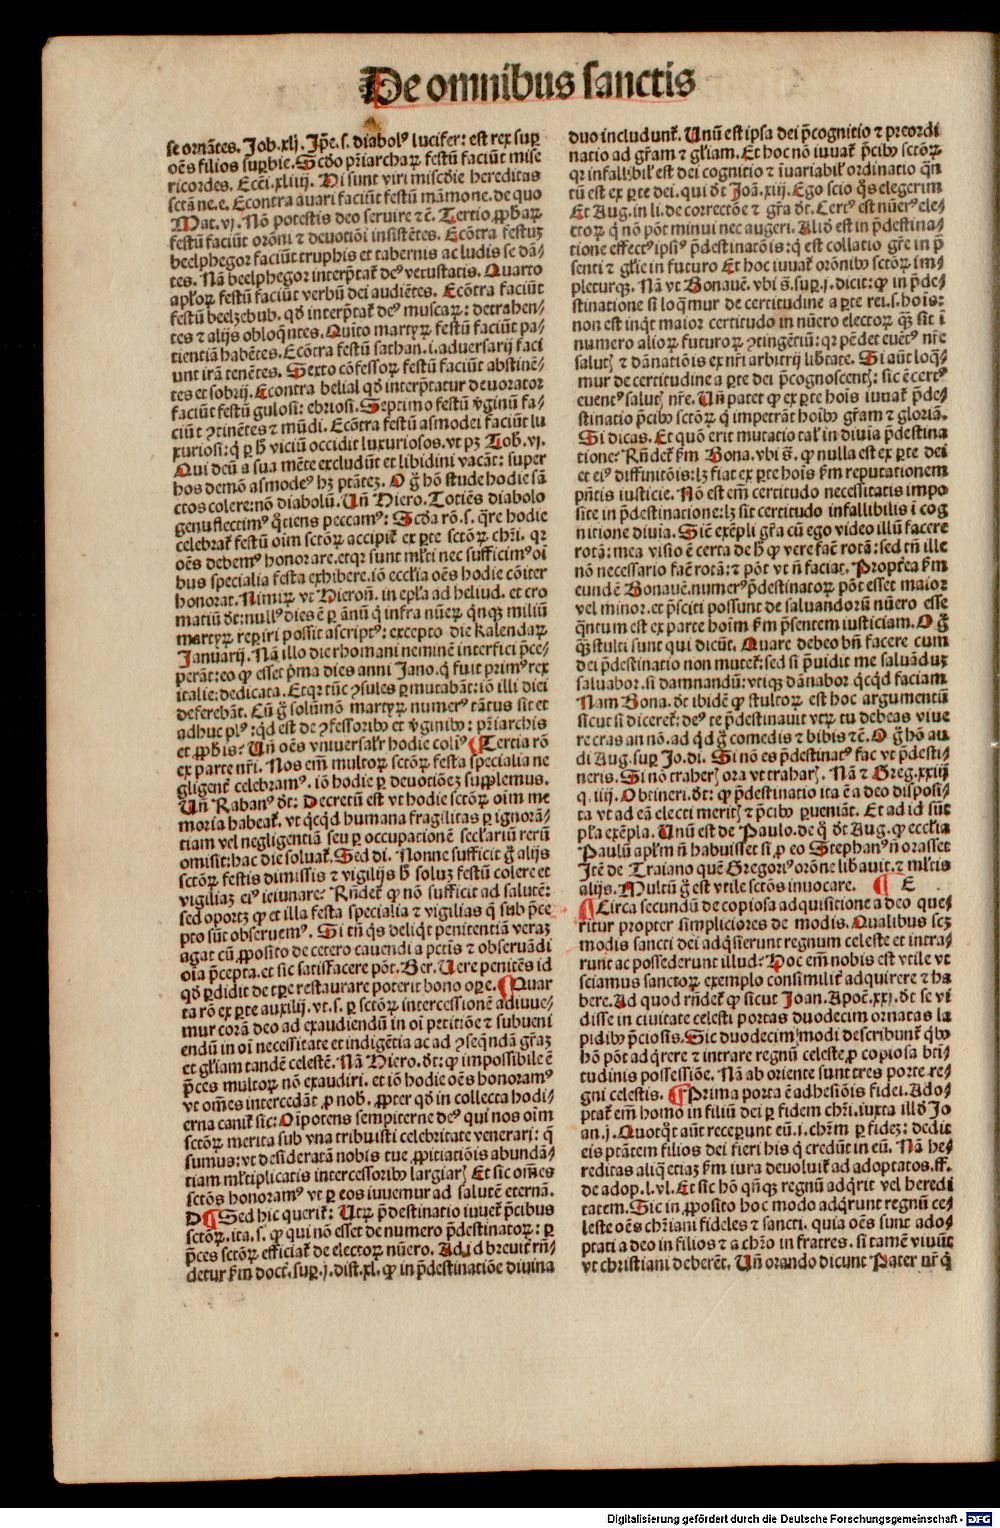 De omnibus sanctis
se ornātes. Job. xlj. Ip̄e .s. diabolꝰ lucifer: est rex suꝑ
oēs filios suꝑbie. Scd̄o pr̄iarchaꝝ festū faciūt mise
ricordes. Ecci. xliiij. Hi sunt viri misc̄die hereditas
sctā ne. e. Econtra auari faciūt festū māmone. de quo
Mat. vj. Nō potestis deo seruire ⁊c̄. Tertio ꝓph̄aꝝ
festū faciūt orōni ⁊ deuotiōi insistētes. Ecōtra festuꝫ
beelphegor faciūt truphis et tabernis ac ludis se dā⸗
tes. Nā beelphegor interp̄tat̄ deꝰ vetustatis. Quarto
apl̄oꝝ festū faciūt verbū dei audiētes. Ecōtra faciūt
festū beelzebub. qd̄ interp̄tat̄ deꝰ muscaꝝ: detrahen⸗
tes ⁊ alijs obloq̄ntes. Quīto martyꝝ festū faciūt pa⸗
tientiā habētes. Ecōtra festū sathan .i. aduersarij faci
unt irā tenētes. Sexto cōfessoꝝ festū faciūt abstinē⸗
tes et sobrij. Econtra belial qd̄ interp̄tatur deuorator
faciūt festū gulosi: ebriosi. Septimo festū v̄ginū fa⸗
ciūt ꝯtinētes ⁊ mūdi. Ecōtra festū asmodei faciūt lu
xuriosi: q̄ ꝑ h̄ viciū occidit luxuriosos. vt pꝫ Tob. vj.
Qui deū a sua mēte excludūt et libidini vacāt: super
hos demō asmodeꝰ hꝫ ptātēꝫ. O g̊ hō stude hodie sā
ctos colere: nō diabolū. Un̄ Hiero. Totiēs diabolo
genuflectimꝰ q̄tiens peccamꝰ: Scd̄a rō .s. q̄re hodie
celebrat̄ festū oīm sctōꝝ accipit̄ ex ꝑte sctōꝝ chr̄i. qꝛ
oēs debemꝰ honorare. et qꝛ sunt ml̄ti nec sufficimꝰ oī
bus specialia festa exhibere. iō eccl̄ia oēs hodie cōiter
honorat. Nimiꝝ vt Hieron̄. in ep̄la ad heliud. et cro
matiū d̄t: nullꝰ dies ē ꝑ ānū q̄ infra nūeꝝ q̄nqꝫ miliū
martyꝝ reꝑiri possit ascriptꝰ: excepto die kalendaꝝ
Januarij. Nā illo die rhomani neminē interfici p̄ce⸗
perāt: eo ꝙ esset p̄ma dies anni Jano. q̄ fuit primꝰ rex
italie: dedicata. Et qꝛ tūc ꝯsules ꝑmutabāt: iō illi diei
deferebāt. Cū g̊ solūmō martyꝝ numerꝰ tātus sit et
adhuc plꝰ: qd̄ est de ꝯfessoribꝰ et v̄ginibꝰ: pr̄iarchis
et ꝓph̄is? Un̄ oēs vniuersalr̄ hodie colimꝰ ¶ Tertia rō
ex parte nr̄i. Nos em̄ multoꝝ sctōꝝ festa specialia ne
gligent̄ celebramꝰ. iō hodie ꝑ deuotiōeꝫ supplemus.
Un̄ Rabanꝰ d̄t: Decretū est vt hodie sctōꝝ oīm me
moria habeat̄. vt qc̄qd̄ humana fragilitas ꝑ ignorā⸗
tiam vel negligentiā seu ꝑ occupationē secl̄ariū rerū
omisit: hac die soluat̄. Sed di. Nonne sufficit g̊ alijs
sctōꝝ festis dimissis ⁊ vigilijs h̄ soluꝫ festū colere et
vigiliaꝫ eiꝰ ieiunare? Rn̄det̄ ꝙ nō sufficit ad salutē:
sed oportꝫ ꝙ et illa festa specialia ⁊ vigilias q̄ sub p̄ce
pto sūt obseruemꝰ. Si tn̄ q̄s deliq̄t penitentiā veraꝫ
agat cū ꝓposito de cetero cauendi a pctīs ⁊ obseruādi
oīa p̄cepta. et sic satisfacere pōt. Ber. Uere penitēs id
qd̄ ꝑdidit de tꝑe restaurare poterit bono oꝑe. ¶ Quar
ta rō ex ꝑte auxilij. vt .s. ꝑ sctōꝝ intercessionē adiuue⸗
mur corā deo ad exaudiendū in oī petitiōe ⁊ subueni
endū in oī necessitate et indigētia ac ad ꝯseq̄ndā gr̄aꝫ
et gl̄iam tandē celestē. Nā Hiero. d̄t: ꝙ impossibile ē
p̄ces multoꝝ nō exaudiri. et iō hodie oēs honoramꝰ
vt om̄es intercedāt ꝓ nob̄. ꝓpter qd̄ in collecta hodi⸗
erna canit̄ sic: Oīpotens sempiterne deꝰ qui nos oīm
sctōꝝ merita sub vna tribuisti celebritate venerari: q̄
sumus: vt desideratā nobis tue ꝓpitiatiōis abundā⸗
tiam ml̄tiplicatis intercessoribꝰ largiarꝭ Et sic om̄es
sctōs honoramꝰ vt ꝑ eos iuuemur ad salutē eternā.
D ¶ Sed hic querit̄: Utꝝ p̄destinatio iuuet̄ p̄cibus
sctōꝝ. ita .s. ꝙ qui nō esset de numero p̄destinatoꝝ: ꝑ
p̄ces sctōꝝ efficiat̄ de electoꝝ nūero. Ad id breuit̄ rn̄⸗
detur ẜm doct̄. suꝑ .j. dist. xl. ꝙ in p̄destinatiōe diuina
duo includunt̄. Unū est ipsa dei p̄cognitio ⁊ preordi
natio ad gr̄am ⁊ gl̄iam. Et hoc nō iuuat̄ p̄cibꝰ sctōꝝ.
qꝛ infallibil̄ est dei cognitio ⁊ īuariabil̄ ordinatio q̄n
tū est ex ꝑte dei. qui d̄t Joā. xiij. Ego scio q̄s elegerim
Et Aug. in li. de correctōe ⁊ gr̄a d̄t. Certꝰ est nūerꝰ ele⸗
ctoꝝ q̄ nō pōt minui nec augeri. Aliō est in p̄destina⸗
tione effectꝰ ipsiꝰ p̄destinatōis: q̄ est collatio gr̄e in p̄
senti ⁊ gl̄ie in futuro Et hoc iuuat̄ orōnibꝰ sctōꝝ im⸗
pleturqꝫ. Nā vt Bonauē. vbi s̄. suꝑ .j. dicit: ꝙ in p̄de⸗
stinatione si loq̄mur de certitudine a ꝑte rei .s. hoīs:
non est inq̄t maior certitudo in nūero electoꝝ q̄ꝫ sit ī
numero alioꝝ futuroꝝ ꝯtingētiū: qꝛ pēdet euētꝰ nr̄e
salutꝭ ⁊ dānatiōis ex nr̄i arbitrij lib̄tate. Si aūt loq̄⸗
mur de certitudine a ꝑte dei p̄cognoscentꝭ: sic ē certꝰ
euentꝰ salutꝭ nr̄e. Un̄ patet ꝙ ex ꝑte hoīs iuuat̄ p̄de⸗
stinatio p̄cibꝰ sctōꝝ q̄ impetrāt hoībꝰ gr̄am ⁊ gloriā.
Si dicas. Et quō erit mutatio tal̄ in diuīa p̄destina
tione? Rn̄det̄ ẜm Bona. vbi s̄. ꝙ nulla est ex ꝑte dei
et eiꝰ diffinitōis: lꝫ fiat ex ꝑte hoīs ẜm reputationem
pn̄tis iusticie. Nō est em̄ certitudo necessitatis impo
site in p̄destinatione: lꝫ sit certitudo infallibilis ī cog
nitione diuīa. Sic̄ exēpli gr̄a cū ego video illū facere
rotā: mea visio ē certa de h̄ ꝙ vere fac̄ rotā: sed tn̄ ille
nō necessario fac̄ rotā: ⁊ pōt vt n̄ faciat. Propt̄ea ẜm
eundē Bonauē. numerꝰ p̄destinatoꝝ pōt esset maior
vel minor. et p̄sciti possunt de saluandorū nūero esse
q̄ntum est ex parte hoīm ẜm p̄sentem iusticiam. O g̊
q̄ꝫ stulti sunt qui dicūt. Quare debeo bn̄ facere cum
dei p̄destinatio non mutet̄: sed si p̄uidit me saluāduꝫ
saluabor. si damnandū: vtiqꝫ dānabor qc̄qd̄ faciam
Nam Bona. d̄t ibidē ꝙ stultoꝝ est hoc argumentū
sicut si diceret̄: deꝰ te p̄destinauit vtꝝ tu debeas viue
re cras an nō. ad qd̄ g̊ comedis ⁊ bibis ⁊c̄. O g̊ hō au
di Aug. suꝑ Jo. di. Si nō es p̄destinatꝰ fac vt p̄desti⸗
neris. Si nō traherꝭ ora vt traharꝭ. Nā ⁊ Greg. xxiij
q. iiij. Obtineri. d̄t: ꝙ p̄destinatio ita ē a deo disposi⸗
ta vt ad eā electi meritꝭ ⁊ p̄cibꝰ ꝑueniāt. Et ad id sūt
pl̄a exēpla. Unū est de Paulo. de q̄ d̄t Aug. ꝙ eccl̄ia
Paulū apl̄m n̄ habuisset si ꝓ eo Stephanꝰ n̄ orasset
Itē de Traiano quē Gregoriꝰ orōne libauit. ⁊ ml̄tis
alijs. Multū g̊ est vtile sctōs inuocare. ¶ E
¶ Circa secundū de copiosa adquisitione a deo que⸗
ritur propter simpliciores de modis. Qualibus scꝫ
modis sancti dei adq̄sierunt regnum celeste et intra⸗
runt ac possederunt illud? Hoc em̄ nobis est vtile vt
sciamus sanctoꝝ exemplo consimilit̄ adquirere ⁊ ha
bere. Ad quod rn̄det̄ ꝙ sicut Joan. Apoc̄. xxj. d̄t se vi
disse in ciuitate celesti portas duodecim ornatas la
pidibꝰ p̄ciosis. Sic duodecim modi describunt̄ q̄bꝰ
hō pōt adq̄rere ⁊ intrare regnū celeste ꝓ copiosa bt̄i⸗
tudinis possessiōe. Nā ab oriente sunt tres porte re⸗
gni celestis. ¶ Prima porta ē adhesiōis fidei. Ado⸗
ptat̄ em̄ homo in filiū dei ꝑ fidem chr̄i. iuxta illd̄ Jo
an. j. Quotq̄t aūt receꝑunt eū .i. chr̄m ꝑ fideꝫ: dedit
eis ptātem filios dei fieri his q̄ credūt in eū. Nā he⸗
reditas aliq̄ etiaꝫ ẜm iura deuoluit̄ ad adoptatos. ff.
de adop. l. vl. Et sic hō q̄n̄qꝫ regnū adq̄rit vel heredi
tatem. Sic in ꝓposito hoc modo adq̄runt regnū ce⸗
leste oēs chr̄iani fideles ⁊ sancti. quia oēs sunt ado⸗
ptati a deo in filios ⁊ a chr̄o in fratres. si tamē viuūt
vt christiani deberēt. Un̄ orando dicunt Pater nr̄ q̄
Digitalisierung gefördert durch die Deutsche Forschungsgemeinschaft - DFG